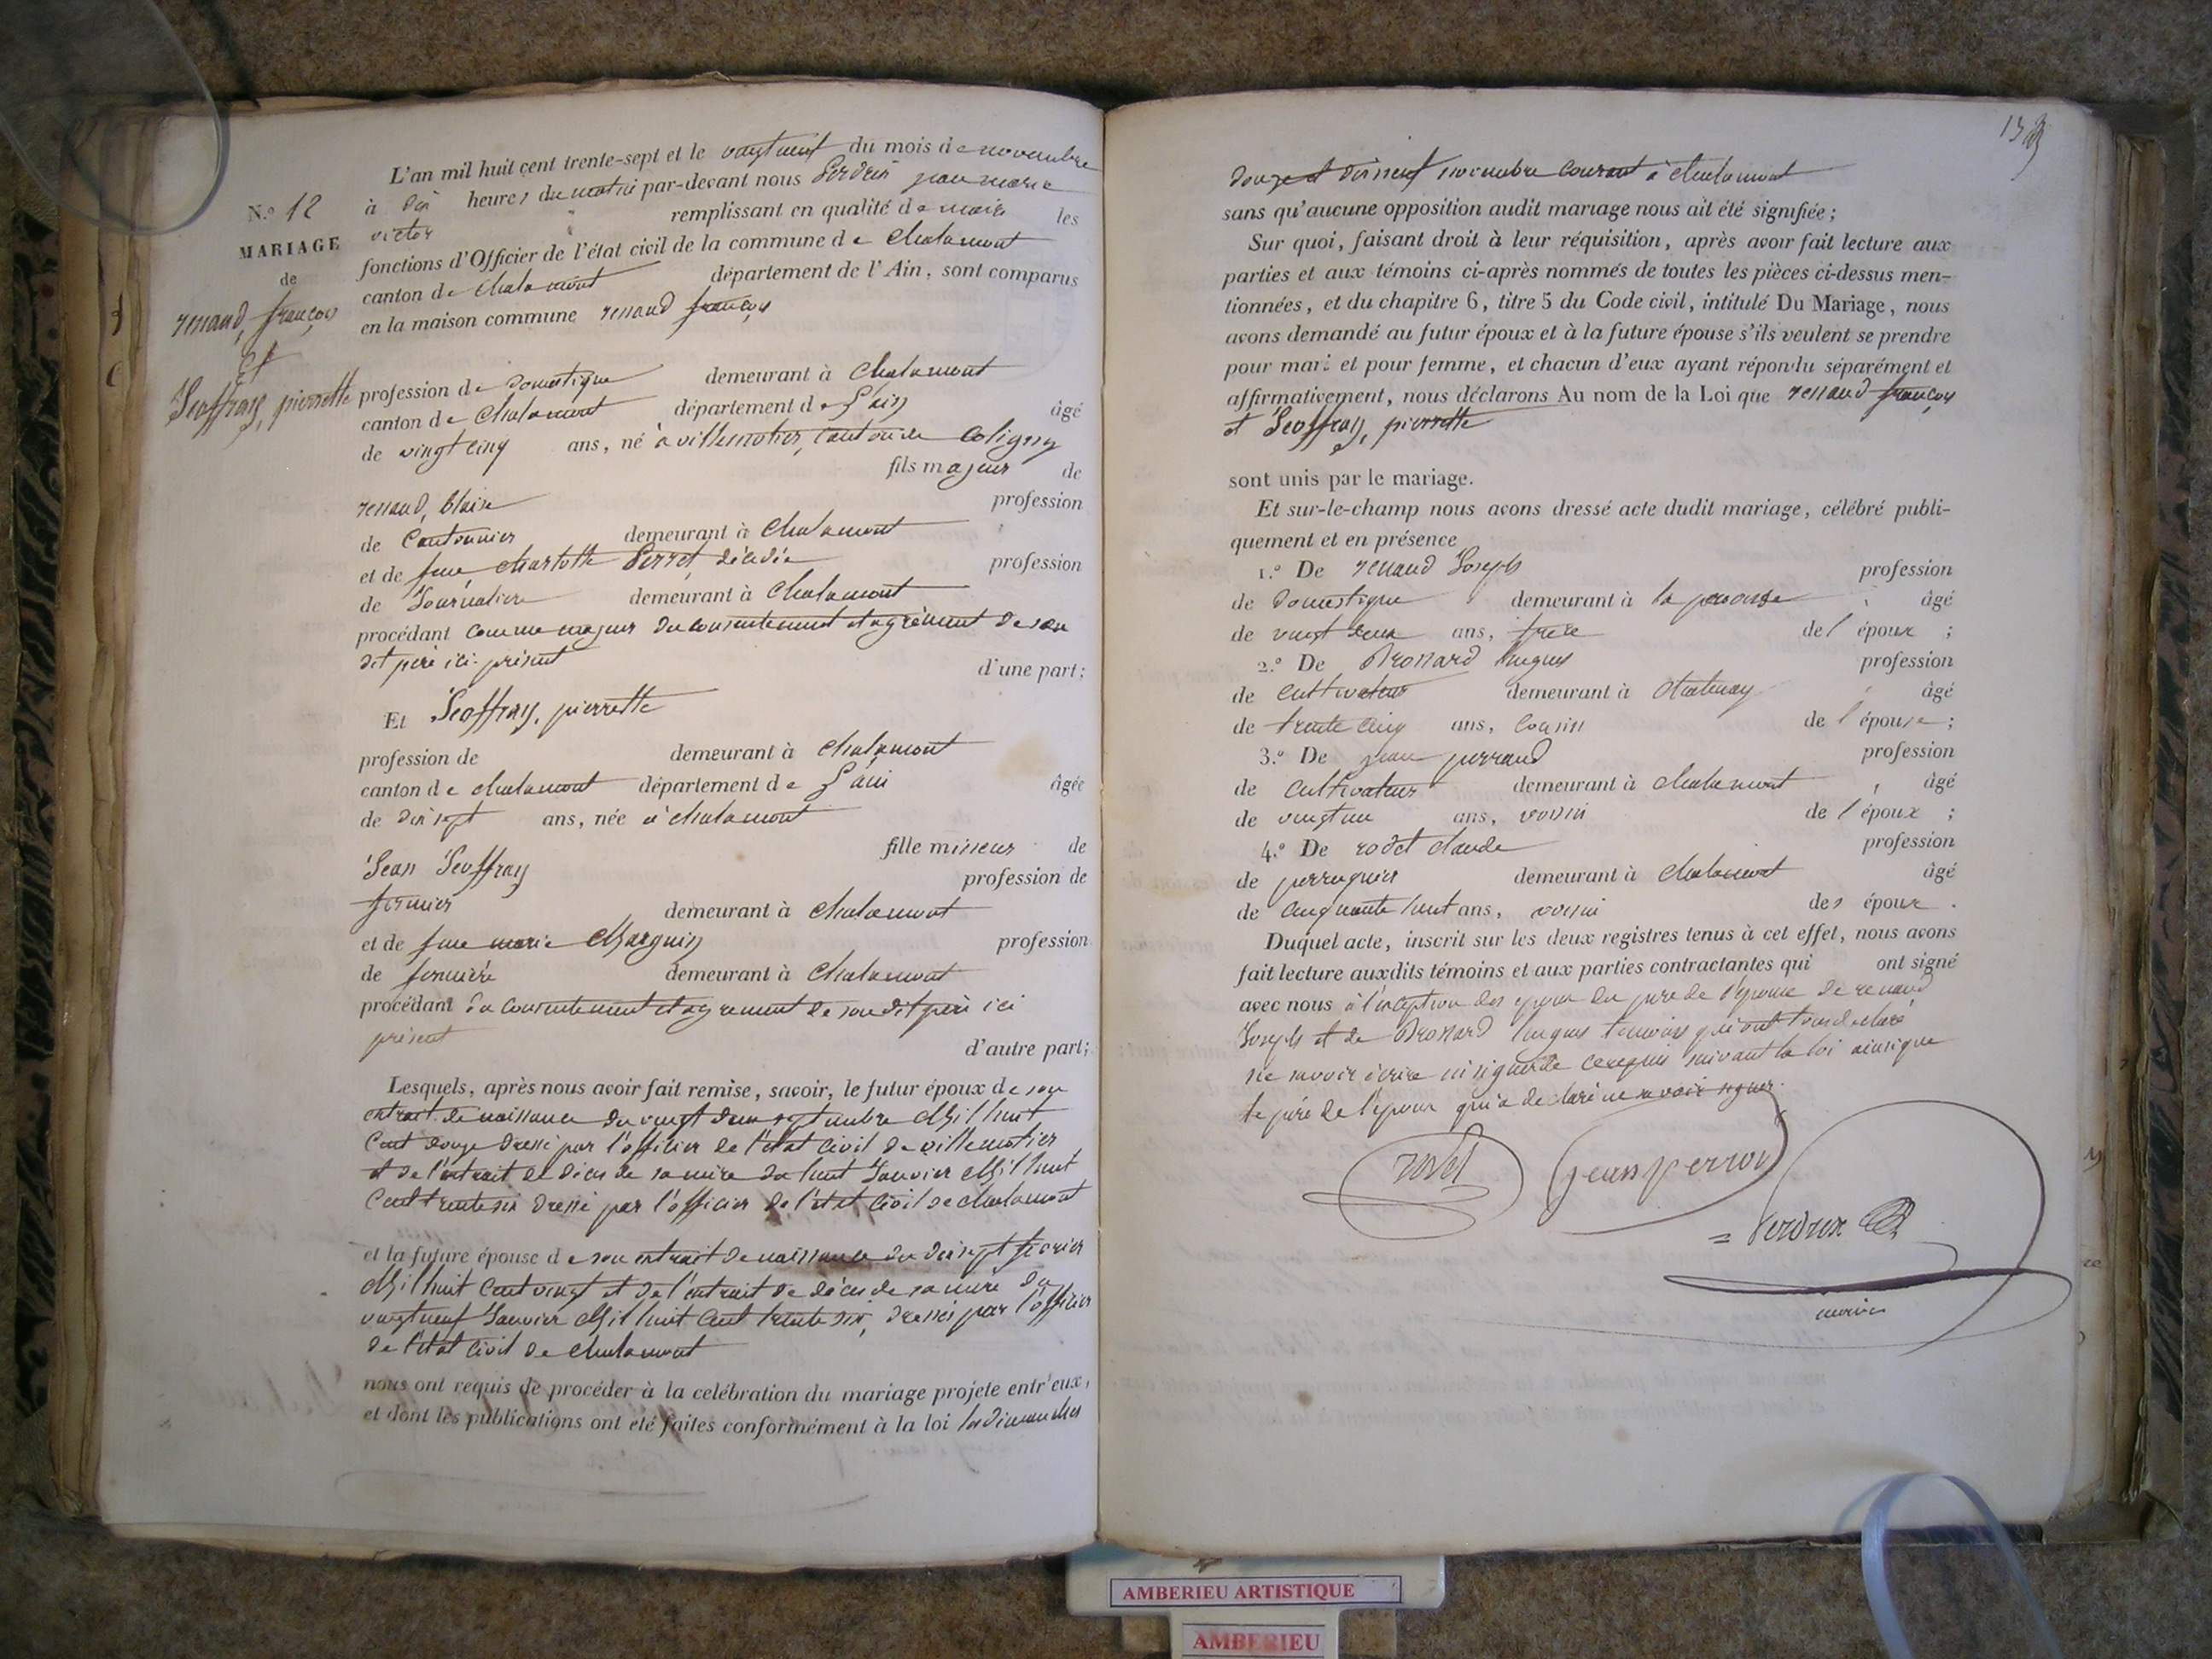 L'an mil huit cent trente-sept et le vingt neuf du mois de novembre
N.º 12
à dix heures du matin par-devant nous Perdrix jean marie
victor remplissant en qualité de maire les
MARIAGE
fonctions d'Officier de l'état civil de la commune de Chalamont
de
canton de Chalamont département de l'Ain, sont comparus
renaud, françois
en la maison commune renaud françois
et
Geoffray, pierrette
profession de Domestique demeurant à Chalamont
canton de Chalamont département de L'ain âgé
de vingt cinq ans, né à villemotier, canton de Coligny
fils majeur de
renaud, blaise profession
de Cantonnier demeurant à Chalamont
et de feue charlotte Perret, décédée profession
de Journaliere demeurant à Chalamont
procédant comme majeur du consentement et agrément de son
dit père ici présent d'une part;
Et Geoffray, pierrette
profession de demeurant à Chalamont
canton de chalamont département de L'ain âgée
de dix sept ans, née à chalamont
fille mineur de
Jean Geoffray profession de
fermier demeurant à chalamont
et de feue marie Marguin profession
de fermière demeurant à Chalamont
procédant du consentement et agrément de son dit père ici
présent d'autre part;
Lesquels, après nous avoir fait remise, savoir, le futur époux de son
extrait de naissance du vingt deux septembre Mil huit
Cent douze dressé par l'officier de l'état civil de villemotier
et de l'extrait de décès de sa mère du huit Janvier Mil huit
Cent trente six dressé par l'officier de l'état civil de chalamont
et la future épouse de son extrait de naissance du dix sept février
Mil huit Cent vingt et de l'extrait de décès de sa mère du
vingt neuf Janvier Mil huit Cent trente six, dressés par l'officier
de l'état civil de Chalamont
nous ont requis de procéder à la celébration du mariage projeté entr'eux,
et dont les publications ont été faites conformément à la loi les dimanches
13
douze et dix neuf novembre Courant à Chalamont
sans qu'aucune opposition audit mariage nous ait été signifiée;
Sur quoi, faisant droit à leur réquisition, après avoir fait lecture aux
parties et aux témoins ci-après nommés de toutes les pièces ci-dessus men-
tionnées, et du chapitre 6, titre 5 du Code civil, intitulé Du Mariage, nous
avons demandé au futur époux et à la future épouse s'ils veulent se prendre
pour mari et pour femme, et chacun d'eux ayant répondu séparément et
affirmativement, nous déclarons Au nom de la Loi que renaud françois
et Geoffray, pierrette
sont unis par le mariage.
Et sur-le-champ nous avons dressé acte dudit mariage, célébré publi-
quement et en présence
1.º De renaud Joseph profession
de Domestique demeurant à la âgé
de vingt deux ans, frère de l'époux ;
2.º De Brossard hugues profession
de cultivateur demeurant à Chatenay âgé
de trente cinq ans, cousin de l'épouse ;
3.º De jean perraud profession
de Cultivateur demeurant à Chalamont , âgé
de vingt un ans, voisin de l'époux ;
4.º De rodet claude profession
de perruquier demeurant à Chalamont âgé
de cinquante huit ans, voisin des époux .
Duquel acte, inscrit sur les deux registres tenus à cet effet, nous avons
fait lecture auxdits témoins et aux parties contractantes qui ont signé
avec nous à l'exception des époux du père de l'épouse de renaud
Joseph et de Brossard hugues témoins qui ont tous déclaré
ne savoir écrire ni signer de ce requis suivant la loi ainsi que
le père de l'époux qui a déclaré ne savoir signer.
rodet jean perrod
Perdrix
maire
AMBERIEU ARTISTIQUE
AMBERIEU